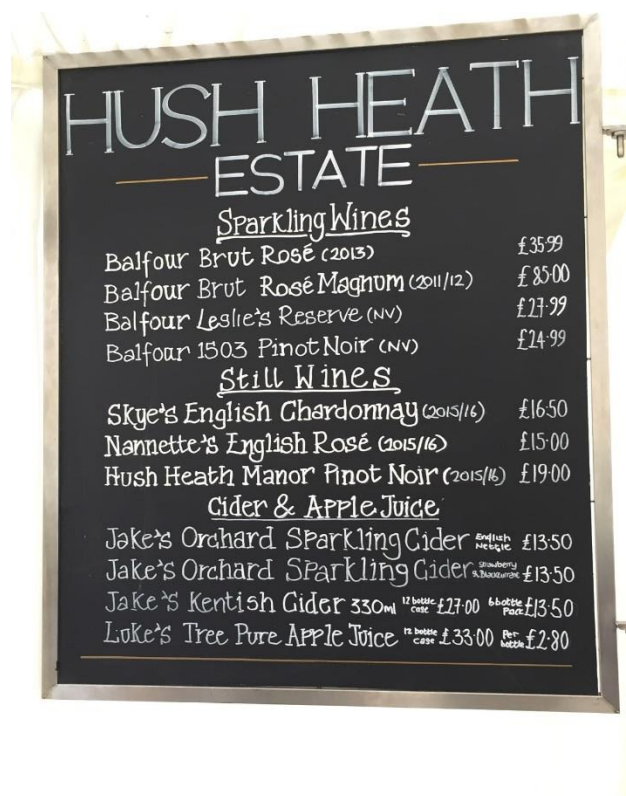 HUSH HEATH
ESTATE
Sparkling Wines
Balfour Brut Rosé (2013) £35.99
Balfour Brut Rosé Magnum (2011/12) £85.00
Balfour Leslie's Reserve (NV) £27.99
Balfour 1503 Pinot Noir (NV) £24.99
Still Wines
Skye's English Chardonnay (2015/16) £16.50
Nannette's English Rosé (2015/16) £15.00
Hush Heath Manor Pinot Noir (2015/16) £19.00
Cider & Apple Juice
Jake's Orchard Sparkling Cider English Nettle £13.50
Jake's Orchard Sparkling Cider Strawberry & Blackcurrant £13.50
Jake's Kentish Cider 330ml 12 bottle case £27.00 6 bottle Pack £13.50
Luke's Tree Pure Apple Juice 12 bottle case £33.00 Per bottle £2.80